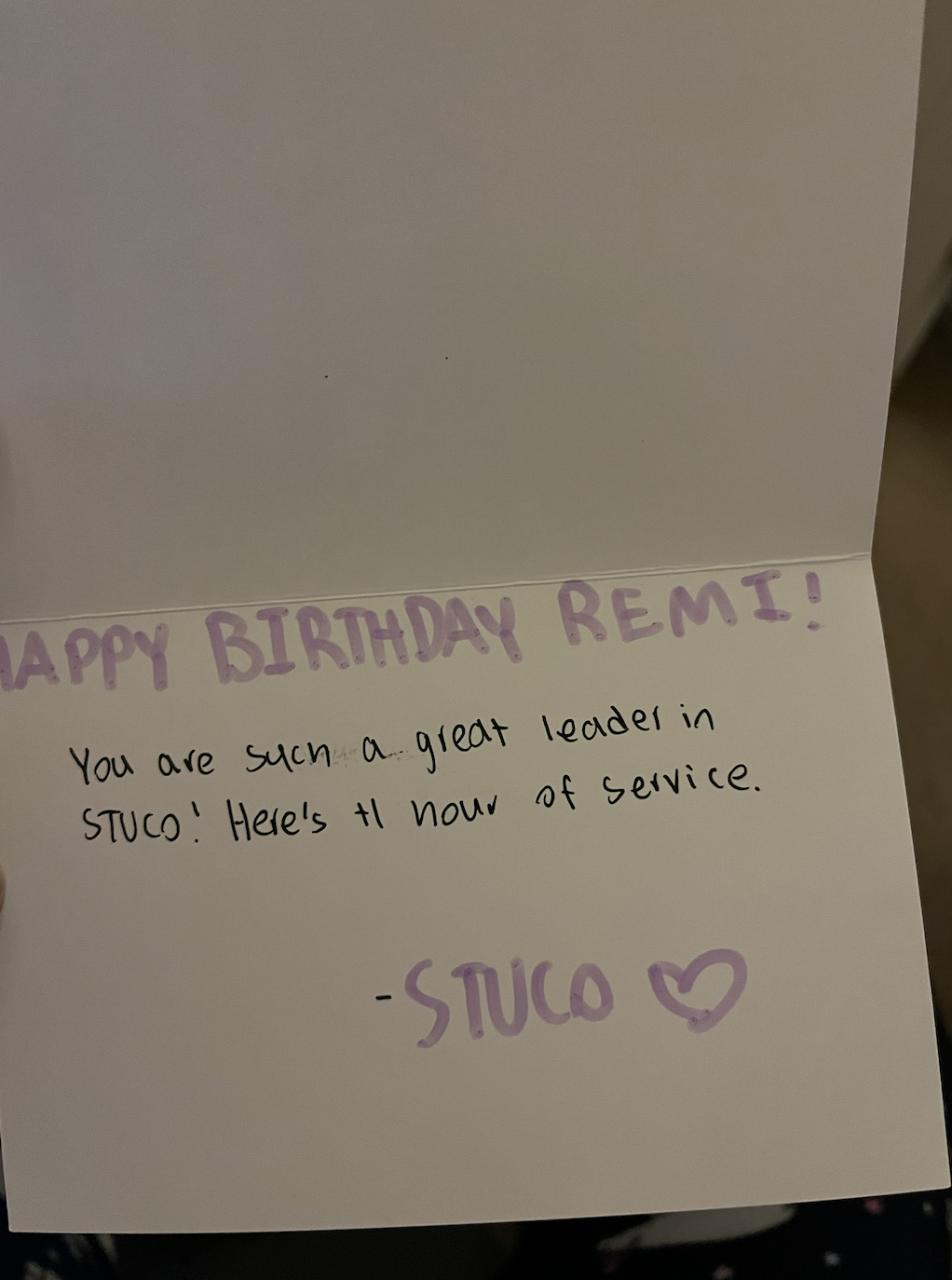 HAPPY BIRTHDAY REMI!
You are such a great leader in
STUCO! Here's +1 hour of service.
-STUCO ♡